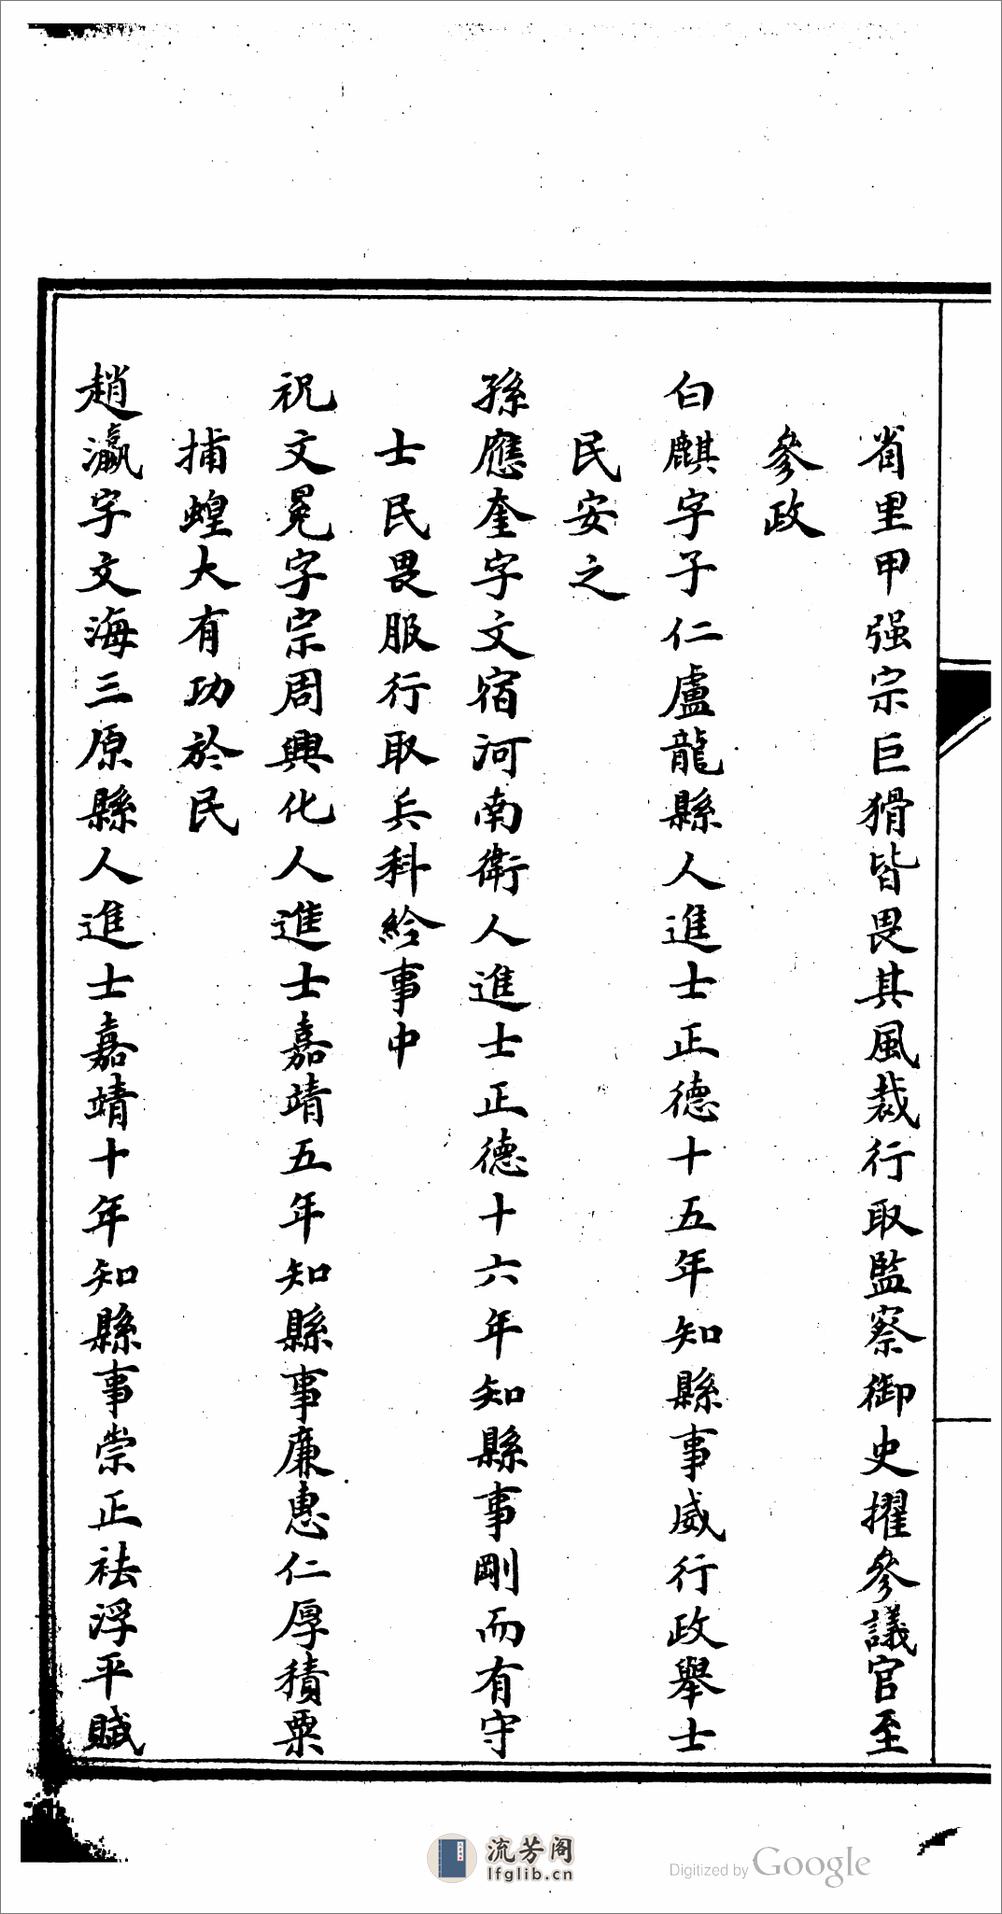 省里甲强宗巨猾皆畏其風裁行取監察御史擢參議官至
參政
白麒字子仁盧龍縣人進士正德十五年知縣事威行政舉士
民安之
孫應奎字文宿河南衛人進士正德十六年知縣事剛而有守
士民畏服行取兵科給事中
祝文冕字宗周興化人進士嘉靖五年知縣事廉惠仁厚積粟
捕蝗大有功於民
趙瀛字文海三原縣人進士嘉靖十年知縣事崇正祛浮平賦
流芳阁
lfglib.cn
Digitized by Google